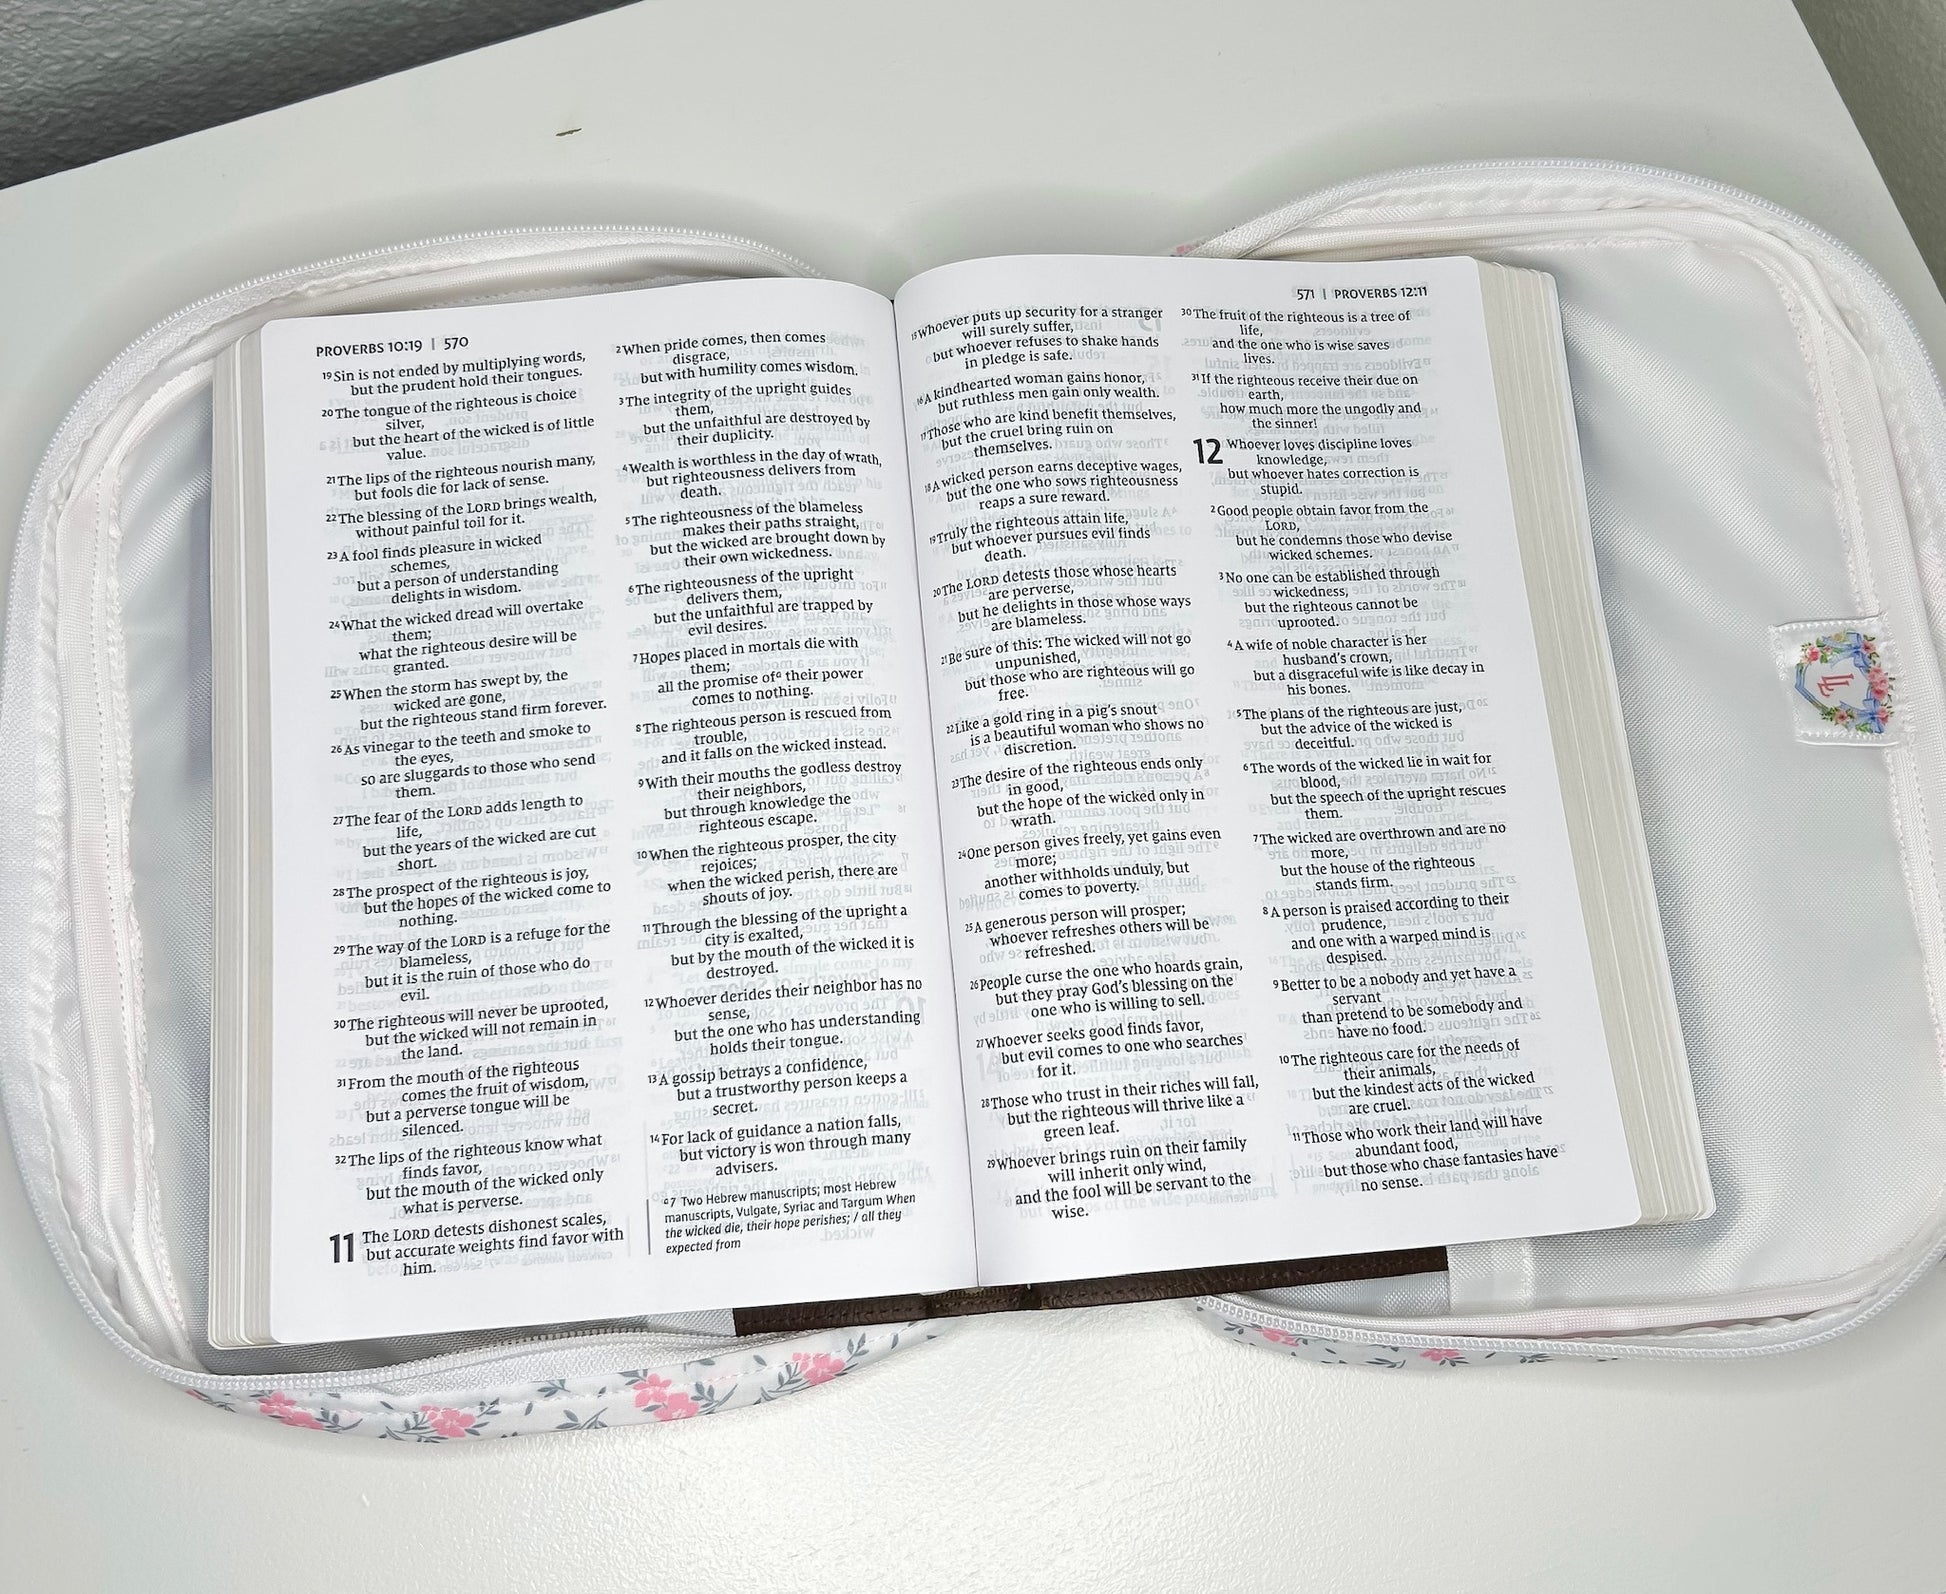 PROVERBS 10:19 | 570
19 Sin is not ended by multiplying words,
but the prudent hold their tongues.
20 The tongue of the righteous is choice
silver,
but the heart of the wicked is of little
value.
21 The lips of the righteous nourish many,
but fools die for lack of sense.
22 The blessing of the LORD brings wealth,
without painful toil for it.
23 A fool finds pleasure in wicked
schemes,
but a person of understanding
delights in wisdom.
24 What the wicked dread will overtake
them;
what the righteous desire will be
granted.
25 When the storm has swept by, the
wicked are gone,
but the righteous stand firm forever.
26 As vinegar to the teeth and smoke to
the eyes,
so are sluggards to those who send
them.
27 The fear of the LORD adds length to
life,
but the years of the wicked are cut
short.
28 The prospect of the righteous is joy,
but the hopes of the wicked come to
nothing.
29 The way of the LORD is a refuge for the
blameless,
but it is the ruin of those who do
evil.
30 The righteous will never be uprooted,
but the wicked will not remain in
the land.
31 From the mouth of the righteous
comes the fruit of wisdom,
but a perverse tongue will be
silenced.
32 The lips of the righteous know what
finds favor,
but the mouth of the wicked only
what is perverse.
11 The LORD detests dishonest scales,
but accurate weights find favor with
him.
2 When pride comes, then comes
disgrace,
but with humility comes wisdom.
3 The integrity of the upright guides
them,
but the unfaithful are destroyed by
their duplicity.
4 Wealth is worthless in the day of wrath,
but righteousness delivers from
death.
5 The righteousness of the blameless
makes their paths straight,
but the wicked are brought down by
their own wickedness.
6 The righteousness of the upright
delivers them,
but the unfaithful are trapped by
evil desires.
7 Hopes placed in mortals die with
them;
all the promise of a their power
comes to nothing.
8 The righteous person is rescued from
trouble,
and it falls on the wicked instead.
9 With their mouths the godless destroy
their neighbors,
but through knowledge the
righteous escape.
10 When the righteous prosper, the city
rejoices;
when the wicked perish, there are
shouts of joy.
11 Through the blessing of the upright a
city is exalted,
but by the mouth of the wicked it is
destroyed.
12 Whoever derides their neighbor has no
sense,
but the one who has understanding
holds their tongue.
13 A gossip betrays a confidence,
but a trustworthy person keeps a
secret.
14 For lack of guidance a nation falls,
but victory is won through many
advisers.
a 7 Two Hebrew manuscripts; most Hebrew
manuscripts, Vulgate, Syriac and Targum When
the wicked die, their hope perishes; / all they
expected from
571 | PROVERBS 12:11
15 Whoever puts up security for a stranger
will surely suffer,
but whoever refuses to shake hands
in pledge is safe.
16 A kindhearted woman gains honor,
but ruthless men gain only wealth.
17 Those who are kind benefit themselves,
but the cruel bring ruin on
themselves.
18 A wicked person earns deceptive wages,
but the one who sows righteousness
reaps a sure reward.
19 Truly the righteous attain life,
but whoever pursues evil finds
death.
20 The LORD detests those whose hearts
are perverse,
but he delights in those whose ways
are blameless.
21 Be sure of this: The wicked will not go
unpunished,
but those who are righteous will go
free.
22 Like a gold ring in a pig's snout
is a beautiful woman who shows no
discretion.
23 The desire of the righteous ends only
in good,
but the hope of the wicked only in
wrath.
24 One person gives freely, yet gains even
more;
another withholds unduly, but
comes to poverty.
25 A generous person will prosper;
whoever refreshes others will be
refreshed.
26 People curse the one who hoards grain,
but they pray God's blessing on the
one who is willing to sell.
27 Whoever seeks good finds favor,
but evil comes to one who searches
for it.
28 Those who trust in their riches will fall,
but the righteous will thrive like a
green leaf.
29 Whoever brings ruin on their family
will inherit only wind,
and the fool will be servant to the
wise.
30 The fruit of the righteous is a tree of
life,
and the one who is wise saves
lives.
31 If the righteous receive their due on
earth,
how much more the ungodly and
the sinner!
12 Whoever loves discipline loves
knowledge,
but whoever hates correction is
stupid.
2 Good people obtain favor from the
LORD,
but he condemns those who devise
wicked schemes.
3 No one can be established through
wickedness,
but the righteous cannot be
uprooted.
4 A wife of noble character is her
husband's crown,
but a disgraceful wife is like decay in
his bones.
5 The plans of the righteous are just,
but the advice of the wicked is
deceitful.
6 The words of the wicked lie in wait for
blood,
but the speech of the upright rescues
them.
7 The wicked are overthrown and are no
more,
but the house of the righteous
stands firm.
8 A person is praised according to their
prudence,
and one with a warped mind is
despised.
9 Better to be a nobody and yet have a
servant
than pretend to be somebody and
have no food.
10 The righteous care for the needs of
their animals,
but the kindest acts of the wicked
are cruel.
11 Those who work their land will have
abundant food,
but those who chase fantasies have
no sense.
LL